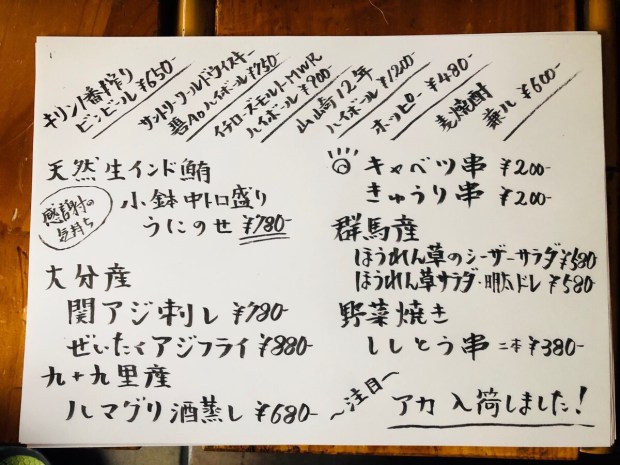 キリン一番搾り
ビンビール ¥650-
サントリーワールドウイスキー
碧Ao ハイボール ¥750
イチローズモルトMWR
ハイボール ¥900
山崎12年
ハイボール ¥1200
ホッピー ¥480
麦焼酎
兼八 ¥600-
天然生インド鮪
感謝の
気持ち
小鉢中トロ盛り
うにのせ ¥780-
大分産
関アジ刺し ¥780-
ぜいたくアジフライ ¥880-
九十九里産
ハマグリ酒蒸し ¥680-
キャベツ串 ¥200-
きゅうり串 ¥200-
群馬産
ほうれん草のシーザーサラダ ¥580
ほうれん草サラダ・明太ドレ ¥580
野菜焼き
ししとう串 二本 ¥380-
〜注目〜
アカ入荷しました!